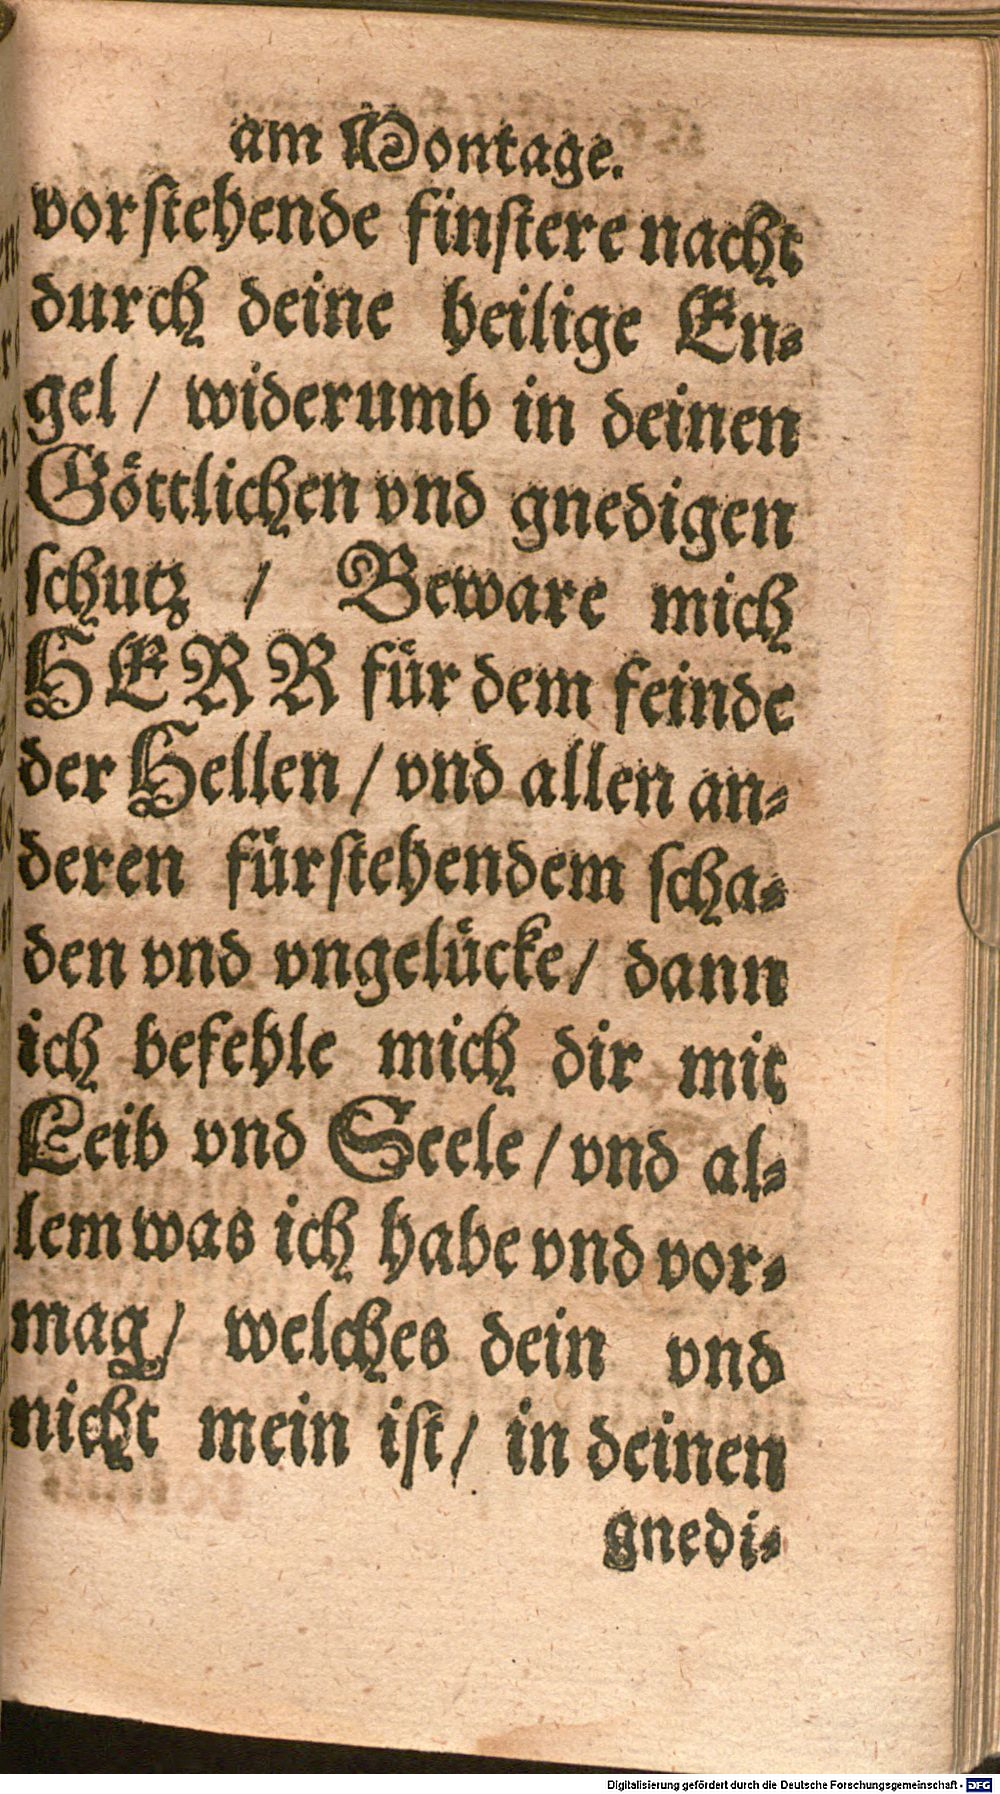 am Montage.
vorstehende finstere nacht
durch deine heilige En⸗
gel / widerumb in deinen
Göttlichen vnd gnedigen
schutz / Beware mich
HERR für dem feinde
der Hellen / vnd allen an⸗
deren fürstehendem scha⸗
den vnd vngelücke / dann
ich befehle mich dir mit
Leib vnd Seele / vnd al⸗
lem was ich habe vnd vor⸗
mag / welches dein vnd
nicht mein ist / in deinen
gnedi⸗
Digitalisierung gefördert durch die Deutsche Forschungsgemeinschaft - DFG